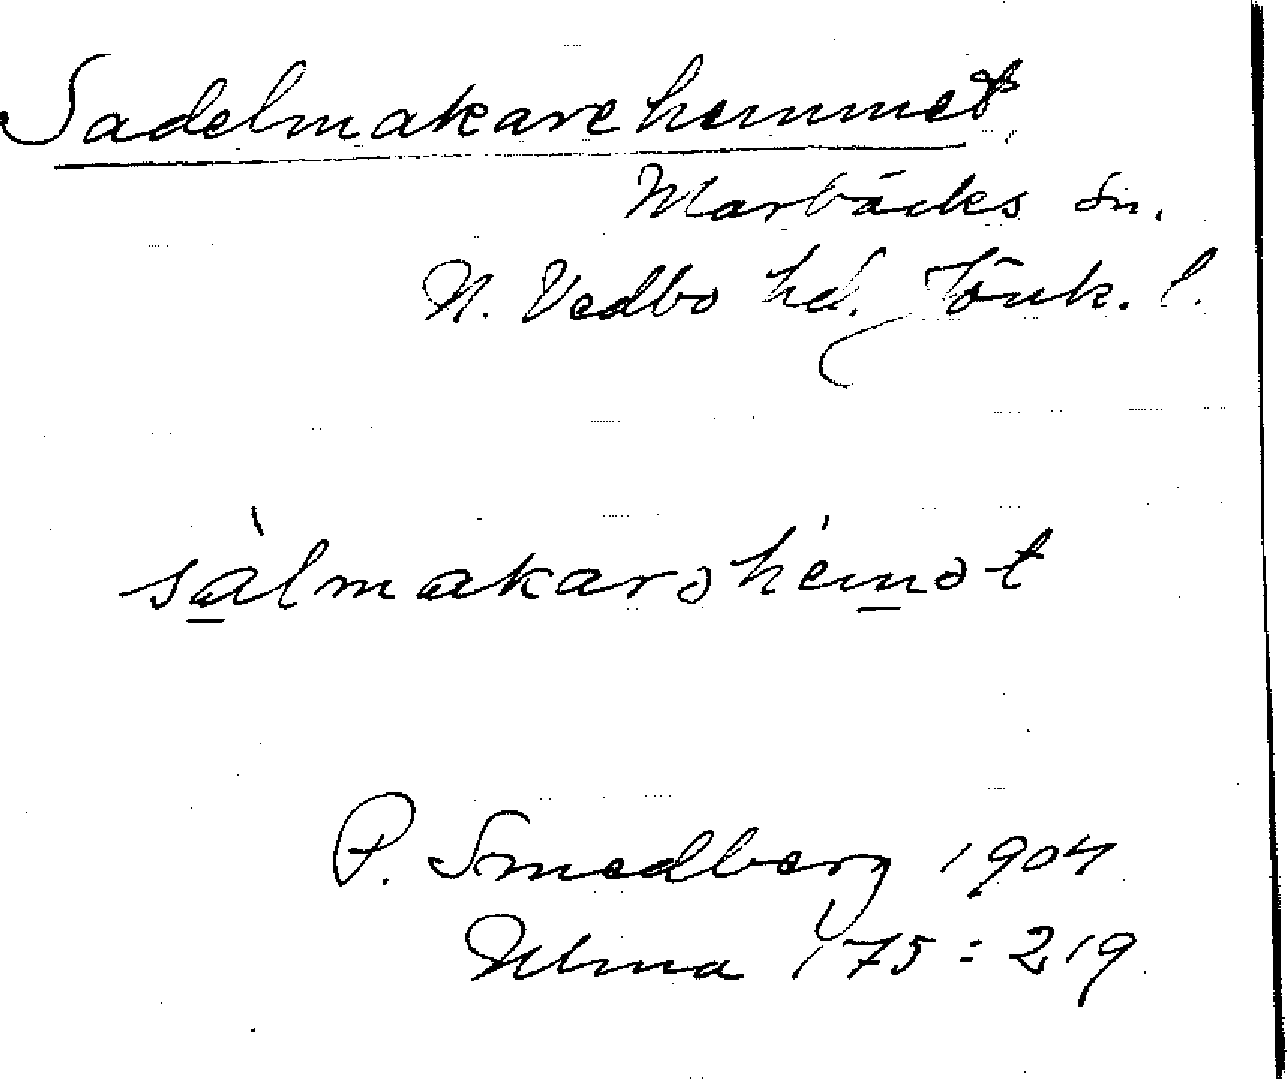 Sadelmakarehemmet,
Marbäcks sn.
N. Vedbo hd. Jönk. l.
sàlmakarəhémət
P. Smedberg 1904
Ulma 175:219